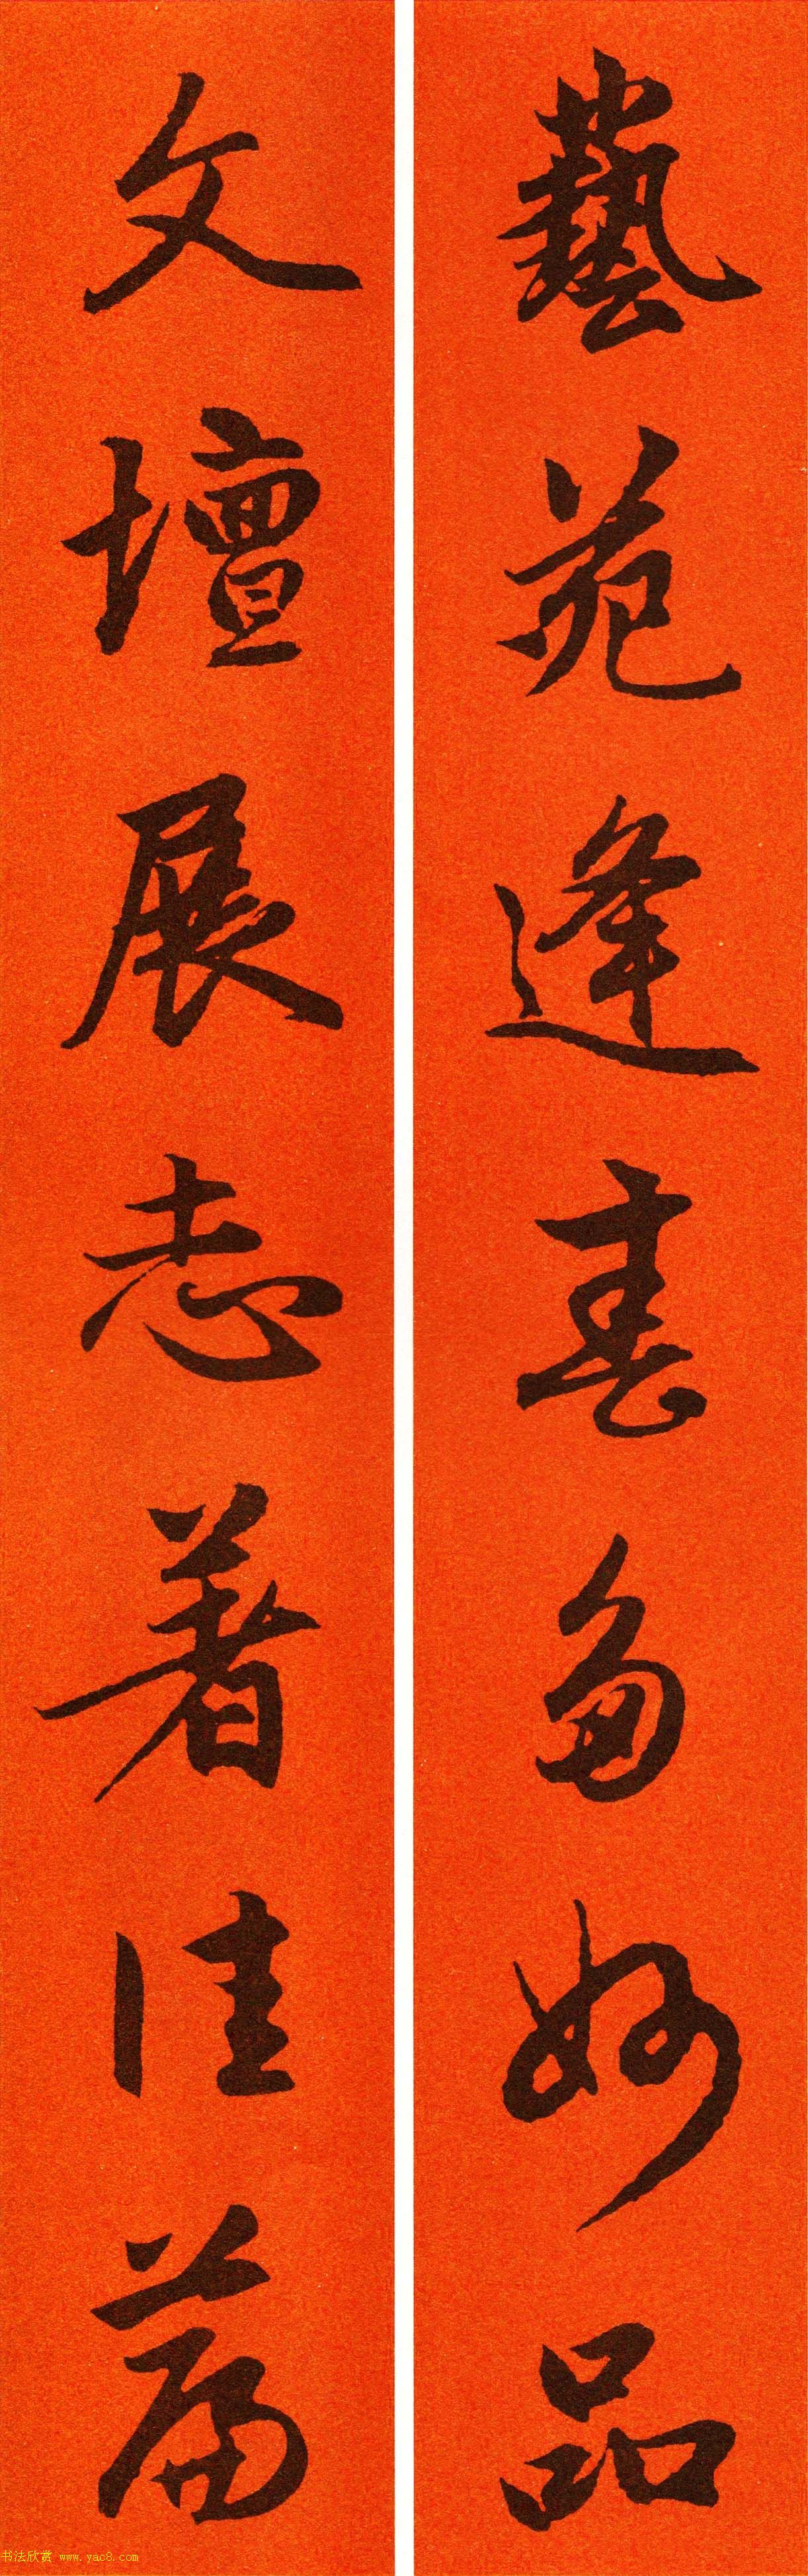 藝苑逢春多妙品
文壇展志著佳篇
书法欣赏 www.yac8.com